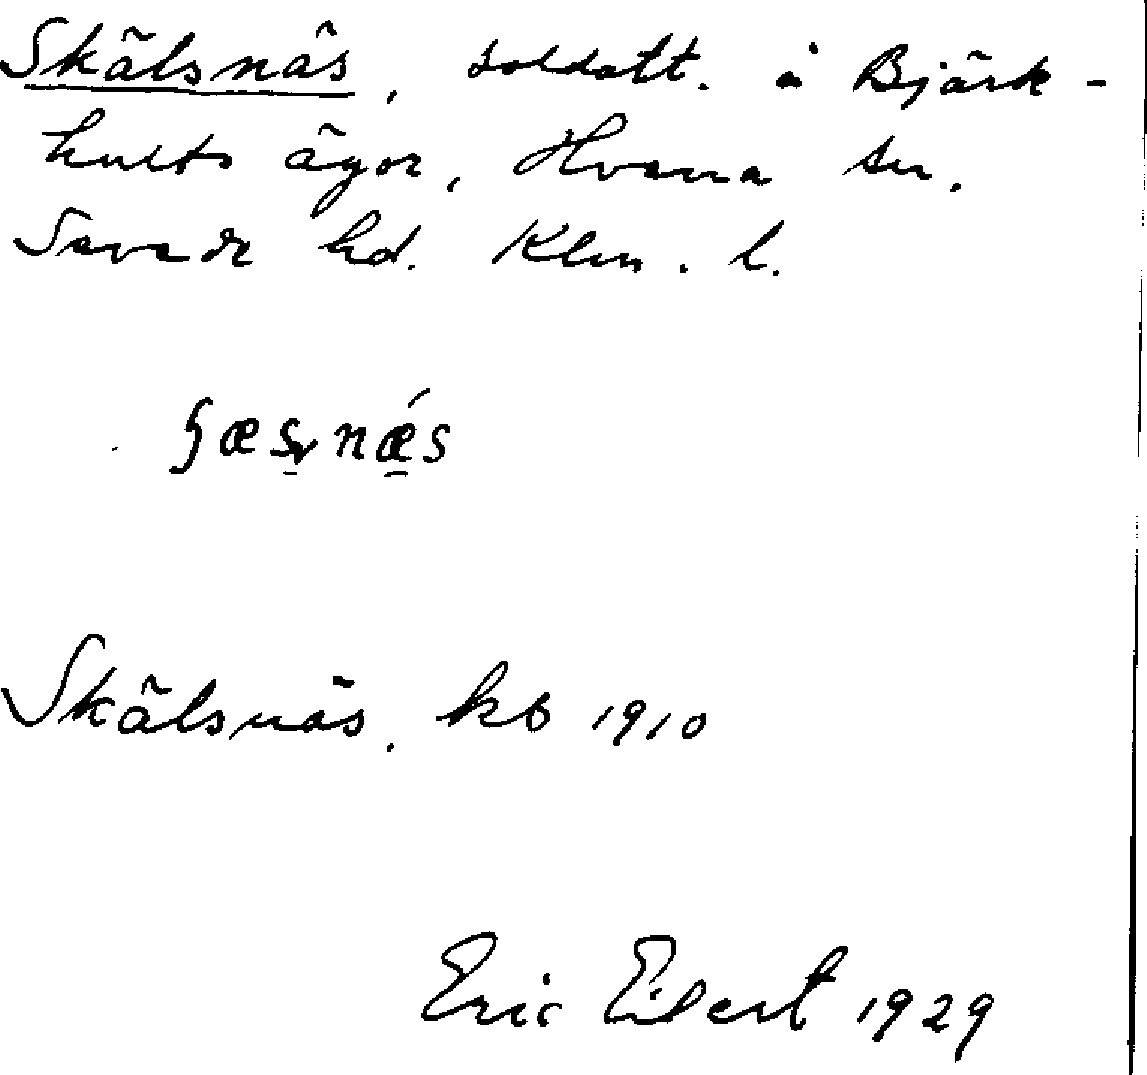 Skälsnäs, soldatt. å Björk-
hults ägor, Hvena sn.
Sevede hd. Klm. l.
Skälsnäs. kb 1910
Eric Elgert 1929